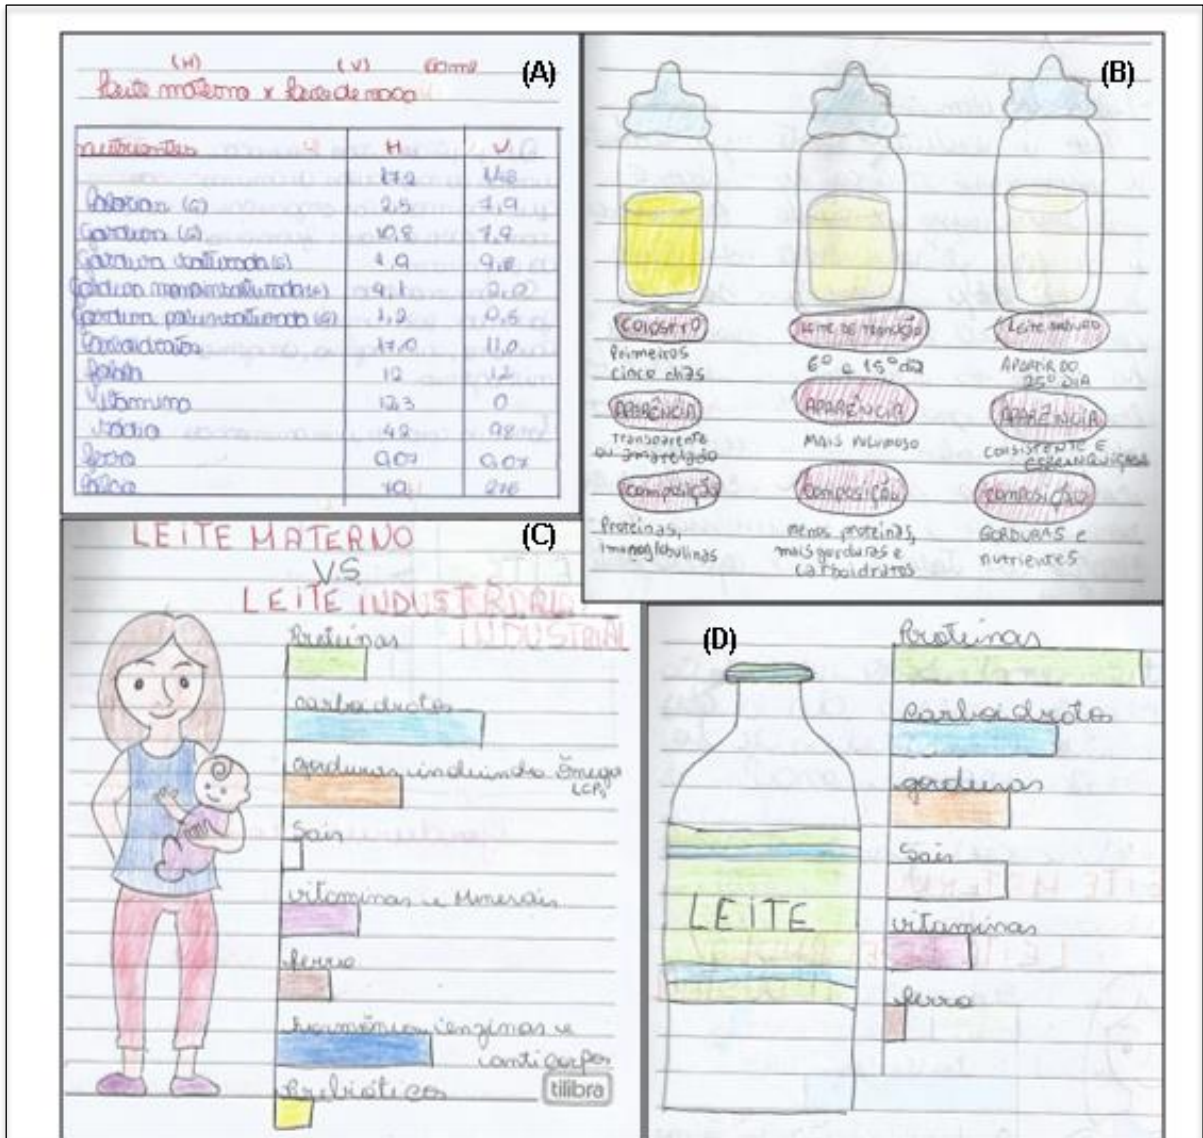 (A)
(H) (V)
leite materno x leite de vaca
nutrientes H V
172
(G) 2,5 7,9
Gordura (G) 10,8 7,9
Gordura saturada (G) 4,9
Gordura monoinsaturada (G) 4,1
Gordura polinsaturada (G) 1,2 0,5
Carboidratos 17,0 11,0
12 12
Vitamina 12,3 0
Sódio 42 98
ferro 0,07 0,07
276
(B)
COLOSTRO
Primeiros
cinco dias
APARÊNCIA
Transparente
ou amarelado
COMPOSIÇÃO
Proteínas,
imunoglobulinas
LEITE DE TRANSIÇÃO
6º e 15º dia
APARÊNCIA
MAIS VOLUMOSO
COMPOSIÇÃO
menos proteínas,
mais gorduras e
carboidratos
LEITE MADURO
APARTIR DO
25º DIA
APARÊNCIA
CONSISTENTE E
ESBRANQUIÇADA
COMPOSIÇÃO
GORDURAS e
nutrientes
(C)
LEITE MATERNO
VS
LEITE INDUSTRIAL
INDUSTRIAL
Proteinas
carboidratos
gorduras incluindo Ômega
LCPs
Sais
vitaminas e Minerais
ferro
hormônios enzinas e
anticorpos
Prebióticos
tilibra
(D)
LEITE
Proteinas
carboidratos
gorduras
Sais
vitaminas
ferro